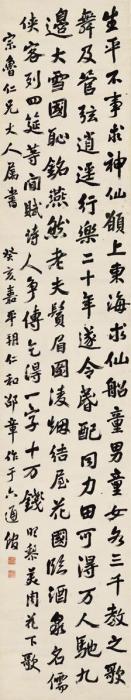 生平不事求神仙願上東海求仙船童男童女各三千教之歌
舞及管弦逍遥行樂二十年遂令婚配同力田可得万人馳九
邊大雪國恥銘燕然老夫鬢眉圖淩烟結屋花園臨酒泉名儒
俠客列四筵等閒賦詩人爭傳乞得一字十万錢 明黎美周花下歌
宗魯仁兄大人屬書 癸亥嘉平朔仁和邵章作于六通館